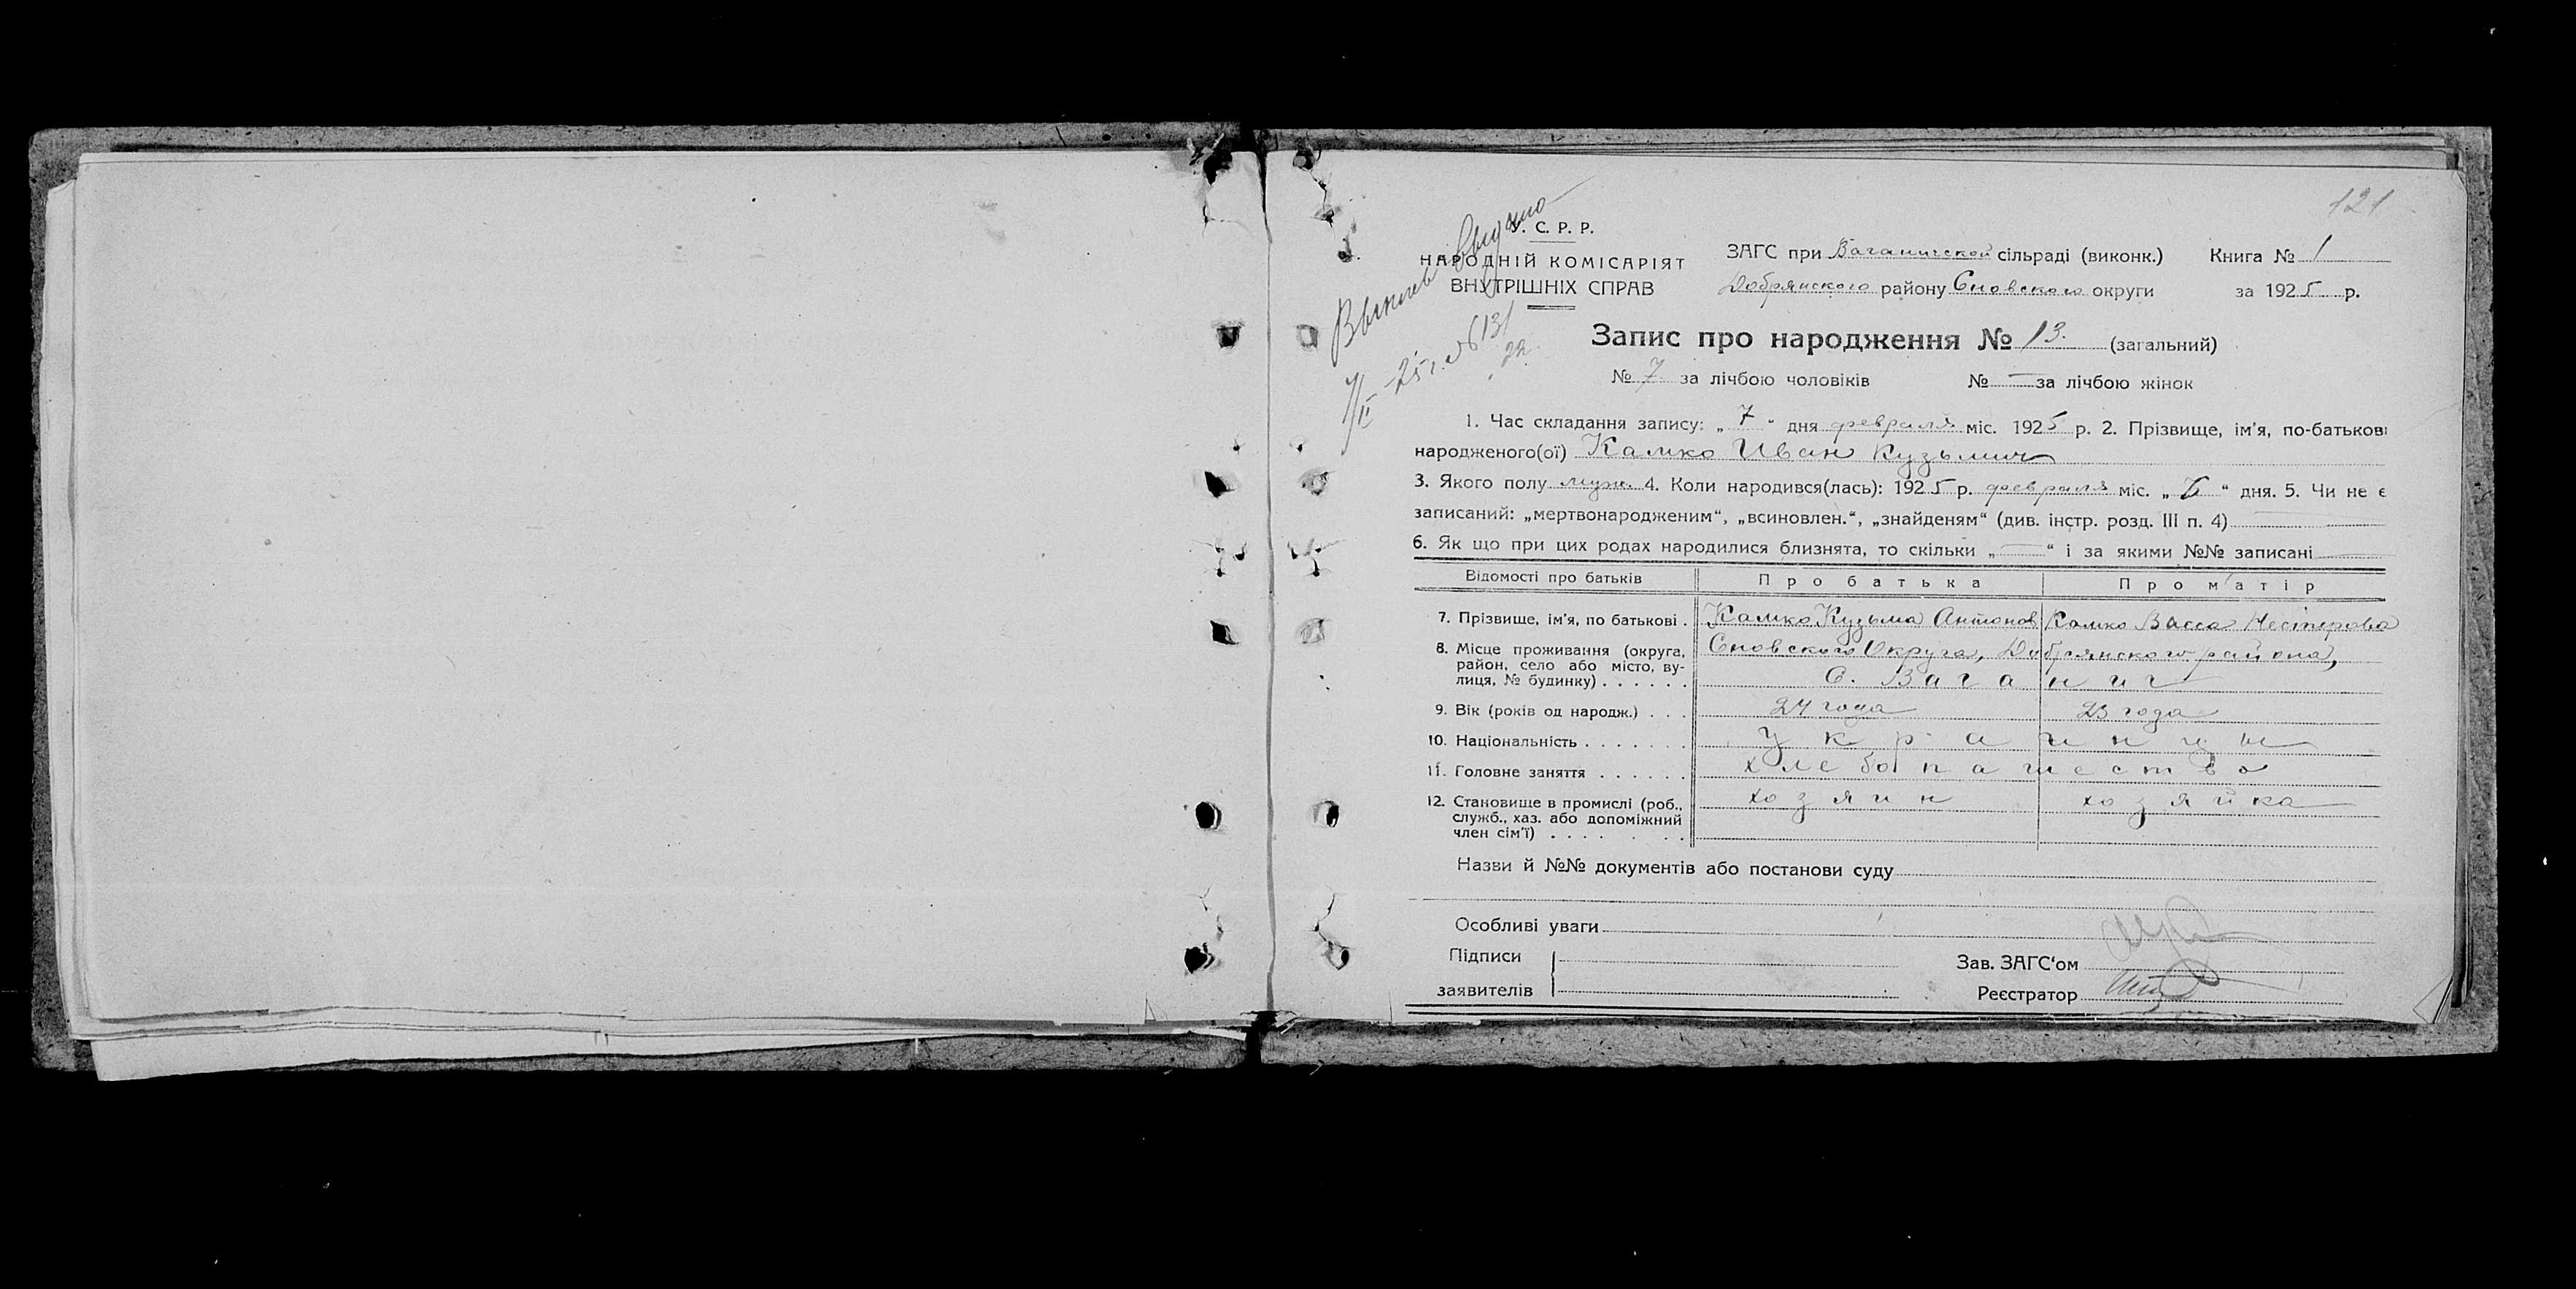 121
Выпись выдана
7/II-25 г. №131
22
У. С. Р. Р.
НАРОДНІЙ КОМІСАРІЯТ
ВНУТРІШНІХ СПРАВ
ЗАГС при Ваганичской сільраді (виконк.) Книга № 1
Добрянского району Сновского округи за 1925 р.
Запис про народження № 13. (загальний)
№ 7 за лічбою чоловіків № — за лічбою жінок
1. Час складання запису: „7“ дня февраля міс. 1925 р. 2. Прізвище, ім'я, по-батькові
народженого(ої) Камко Иван Кузьмич
3. Якого полу муж. 4. Коли народився(лась): 1925 р. февраля міс. „6“ дня. 5. Чи не є
записаний: „мертвонародженим“, „всиновлен.“, „знайденям“ (див. інстр. розд. III п. 4) —
6. Як що при цих родах народилися близнята, то скільки „—“ і за якими №№ записані —
Відомості про батьків Про батька Про матір
7. Прізвище, ім'я, по батькові . Камко Кузьма Антонов Камко Васса Нестерова
8. Місце проживання (округа, район, село або місто, вулиця, № будинку) . . . . . . Сновского Округа, Добрянского района,
С. Ваганич
9. Вік (років од народж.) . . . 24 года 23 года
10. Національність . . . . . . . Украинцы
11. Головне заняття . . . . . . хлебопашество
12. Становище в промислі (роб., служб., хаз. або допоміжний член сім'ї) . . . . . . хозяин хозяйка
Назви й №№ документів або постанови суду
Особливі уваги
Підписи
заявителів
Зав. ЗАГС'ом
Реєстратор